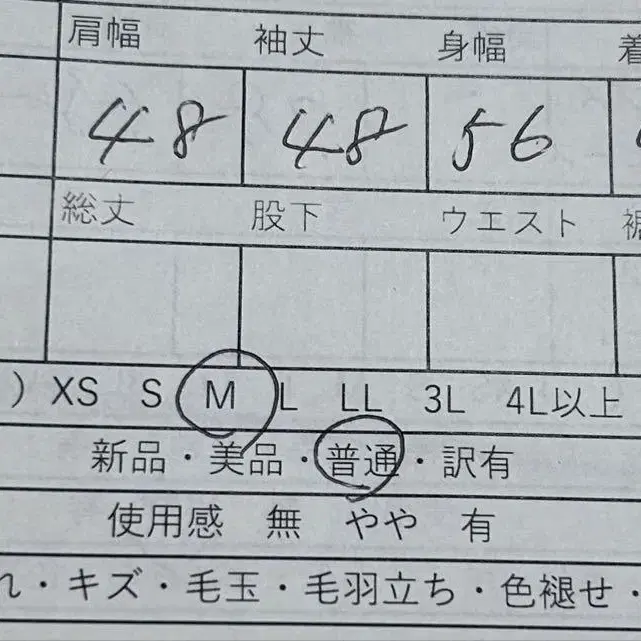 肩幅 袖丈 身幅 着
48 48 56
総丈 股下 ウエスト 裾
）XS S M L LL 3L 4L以上
新品・美品・普通・訳有
使用感 無 やや 有
れ・キズ・毛玉・毛羽立ち・色褪せ・